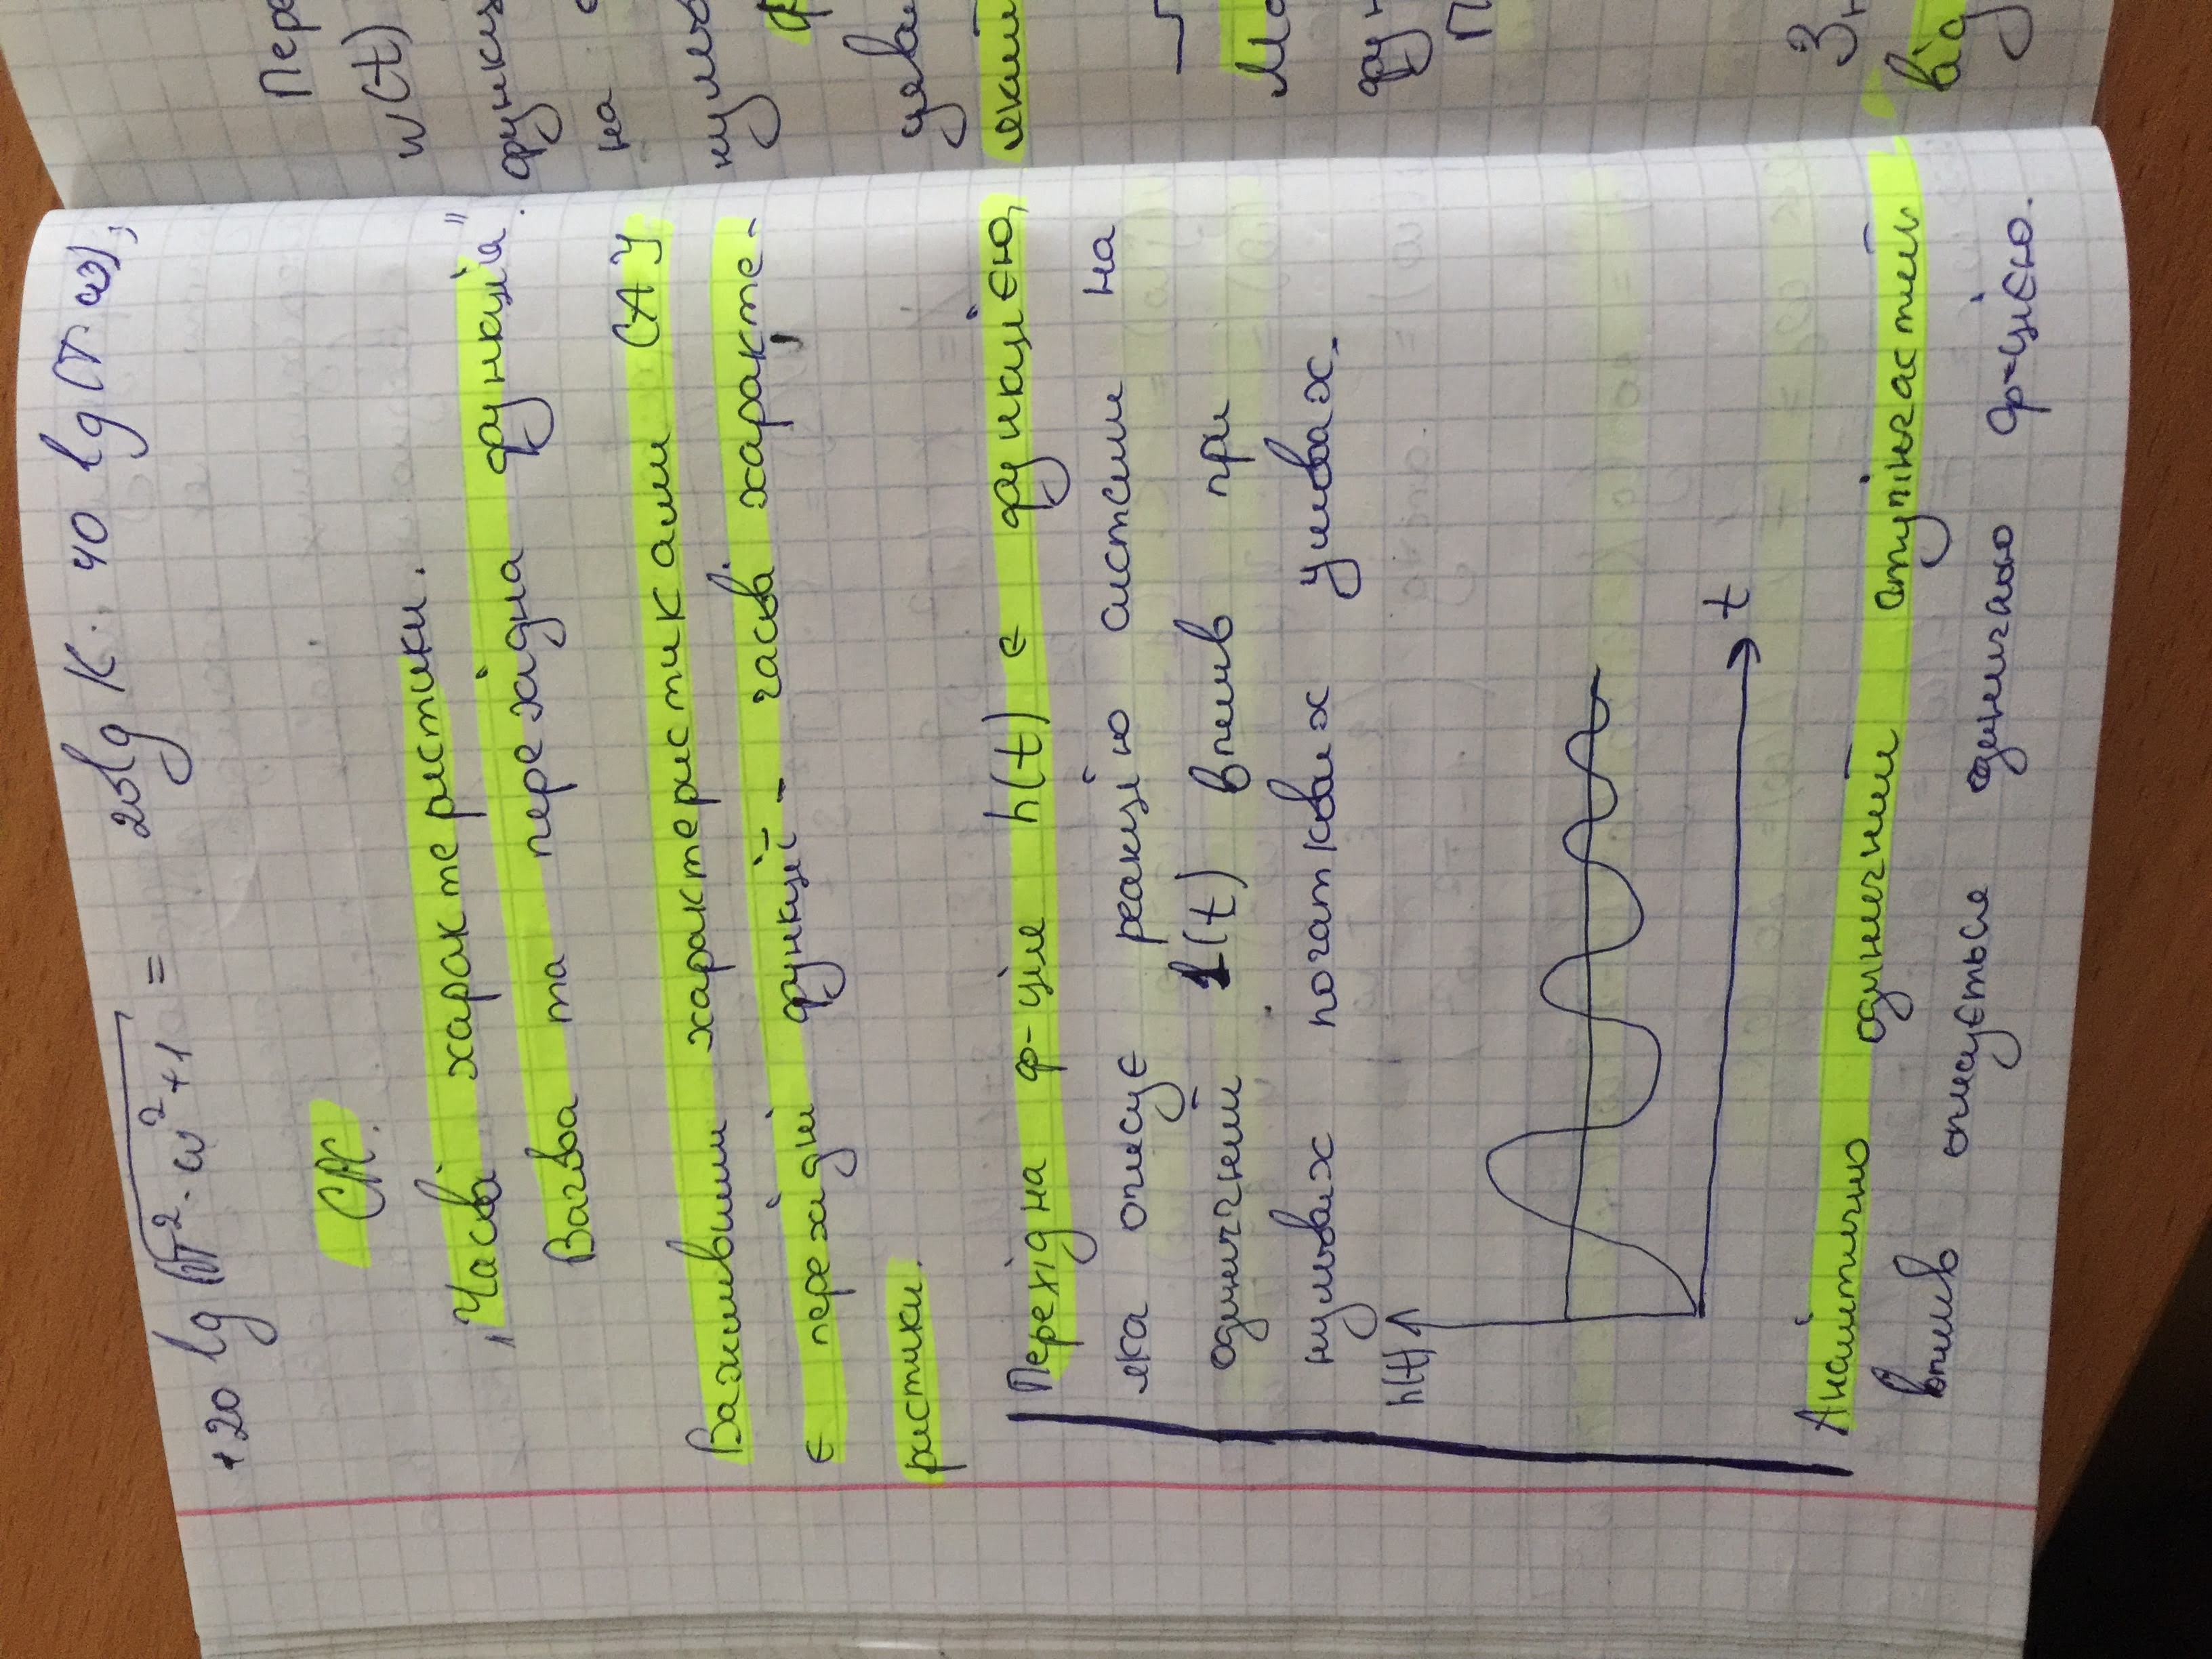 +20 lg √(T²·ω²+1) = 20lg K · 40 lg(T·ω);
СРС.
„Часові характеристики.
Вагова та перехідна функція".
Важливими характеристиками САУ
є перехідні функції - часові характе-
ристики.
Перехідна ф-ція h(t) є функцією,
яка описує реакцію системи на
одиничний 1(t) вплив при
нульових початкових умовах.
h(t)
t
Аналітично одиничний ступінчастий
вплив описується одиничною ф-цією.
Пере
w(t)
функц
на
нульо
який
Мо
фун
П
Зн
від